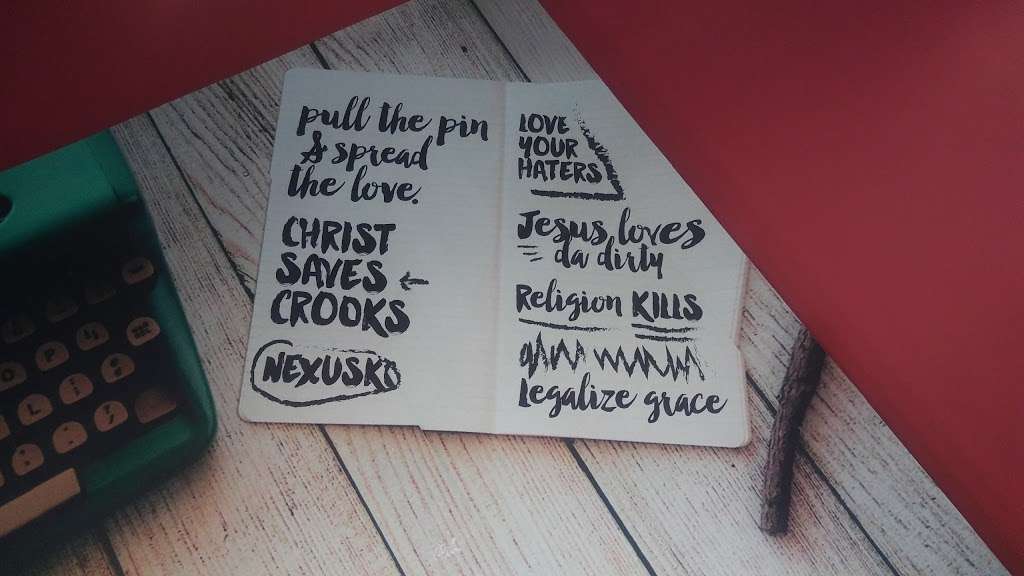 pull the pin
& spread
the love.
CHRIST
SAVES ←
CROOKS
NEXUSKO
LOVE
YOUR
HATERS
Jesus loves
da dirty
Religion KILLS
Legalize grace
P
L